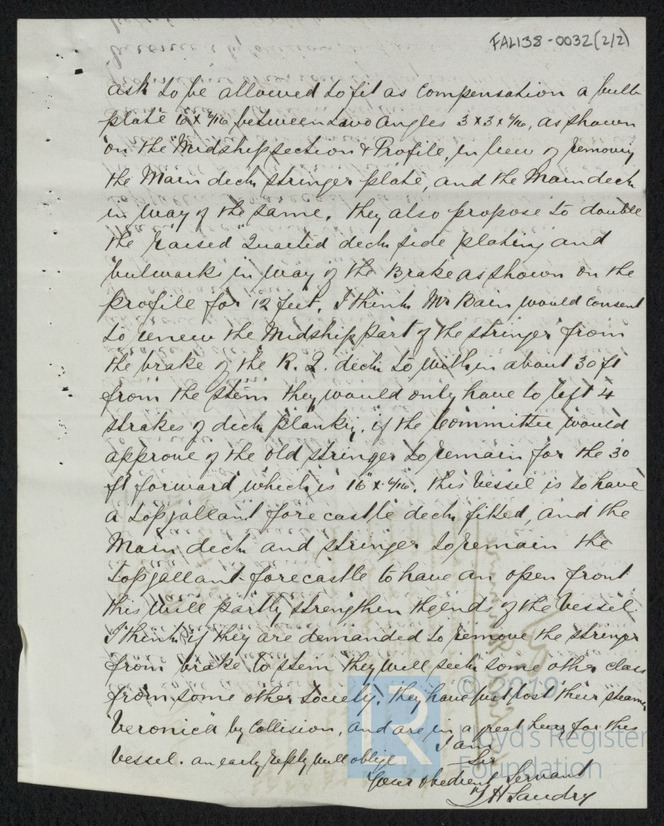 FAL138-0032(2/2)
ask to be allowed to fit as Compensation a bulb
plate between two angles 3 x 3 x 6/16, as shown
on the Midship section & Profile, in lieu of removing
the Main deck stringer plate, and the Main deck
in way of the same. they also propose to double
the raised Quarted deck side plating and
bulwark in way of the Brake as shown on the
profile for 12 feet. I think Mr Bain would consent
to renew the Midship part of the stringer from
the brake of the R. Q. deck to within about 30 ft
from the stem they would only have to left 4
strakes of deck planks. if the Committee would
approve of the old stringer to remain for the 30
ft forward which is 16 x 6/16. this Vessel is to have
a topgallant forecastle deck fitted, and the
Main deck and stringer to remain the
topgallant-forecastle to have an open front
this will partly strengthen the ends of the Vessel.
I think if they are demanded to remove the stringer
from brake to stem they will seek some other class
from some other society, they have just lost their steamer
Veronica by Collision, and are in a great hurry for this
Vessel. an early reply will oblige
I am
Sir
Your obedient Servant
© 2019
Lloyd's Register
Foundation